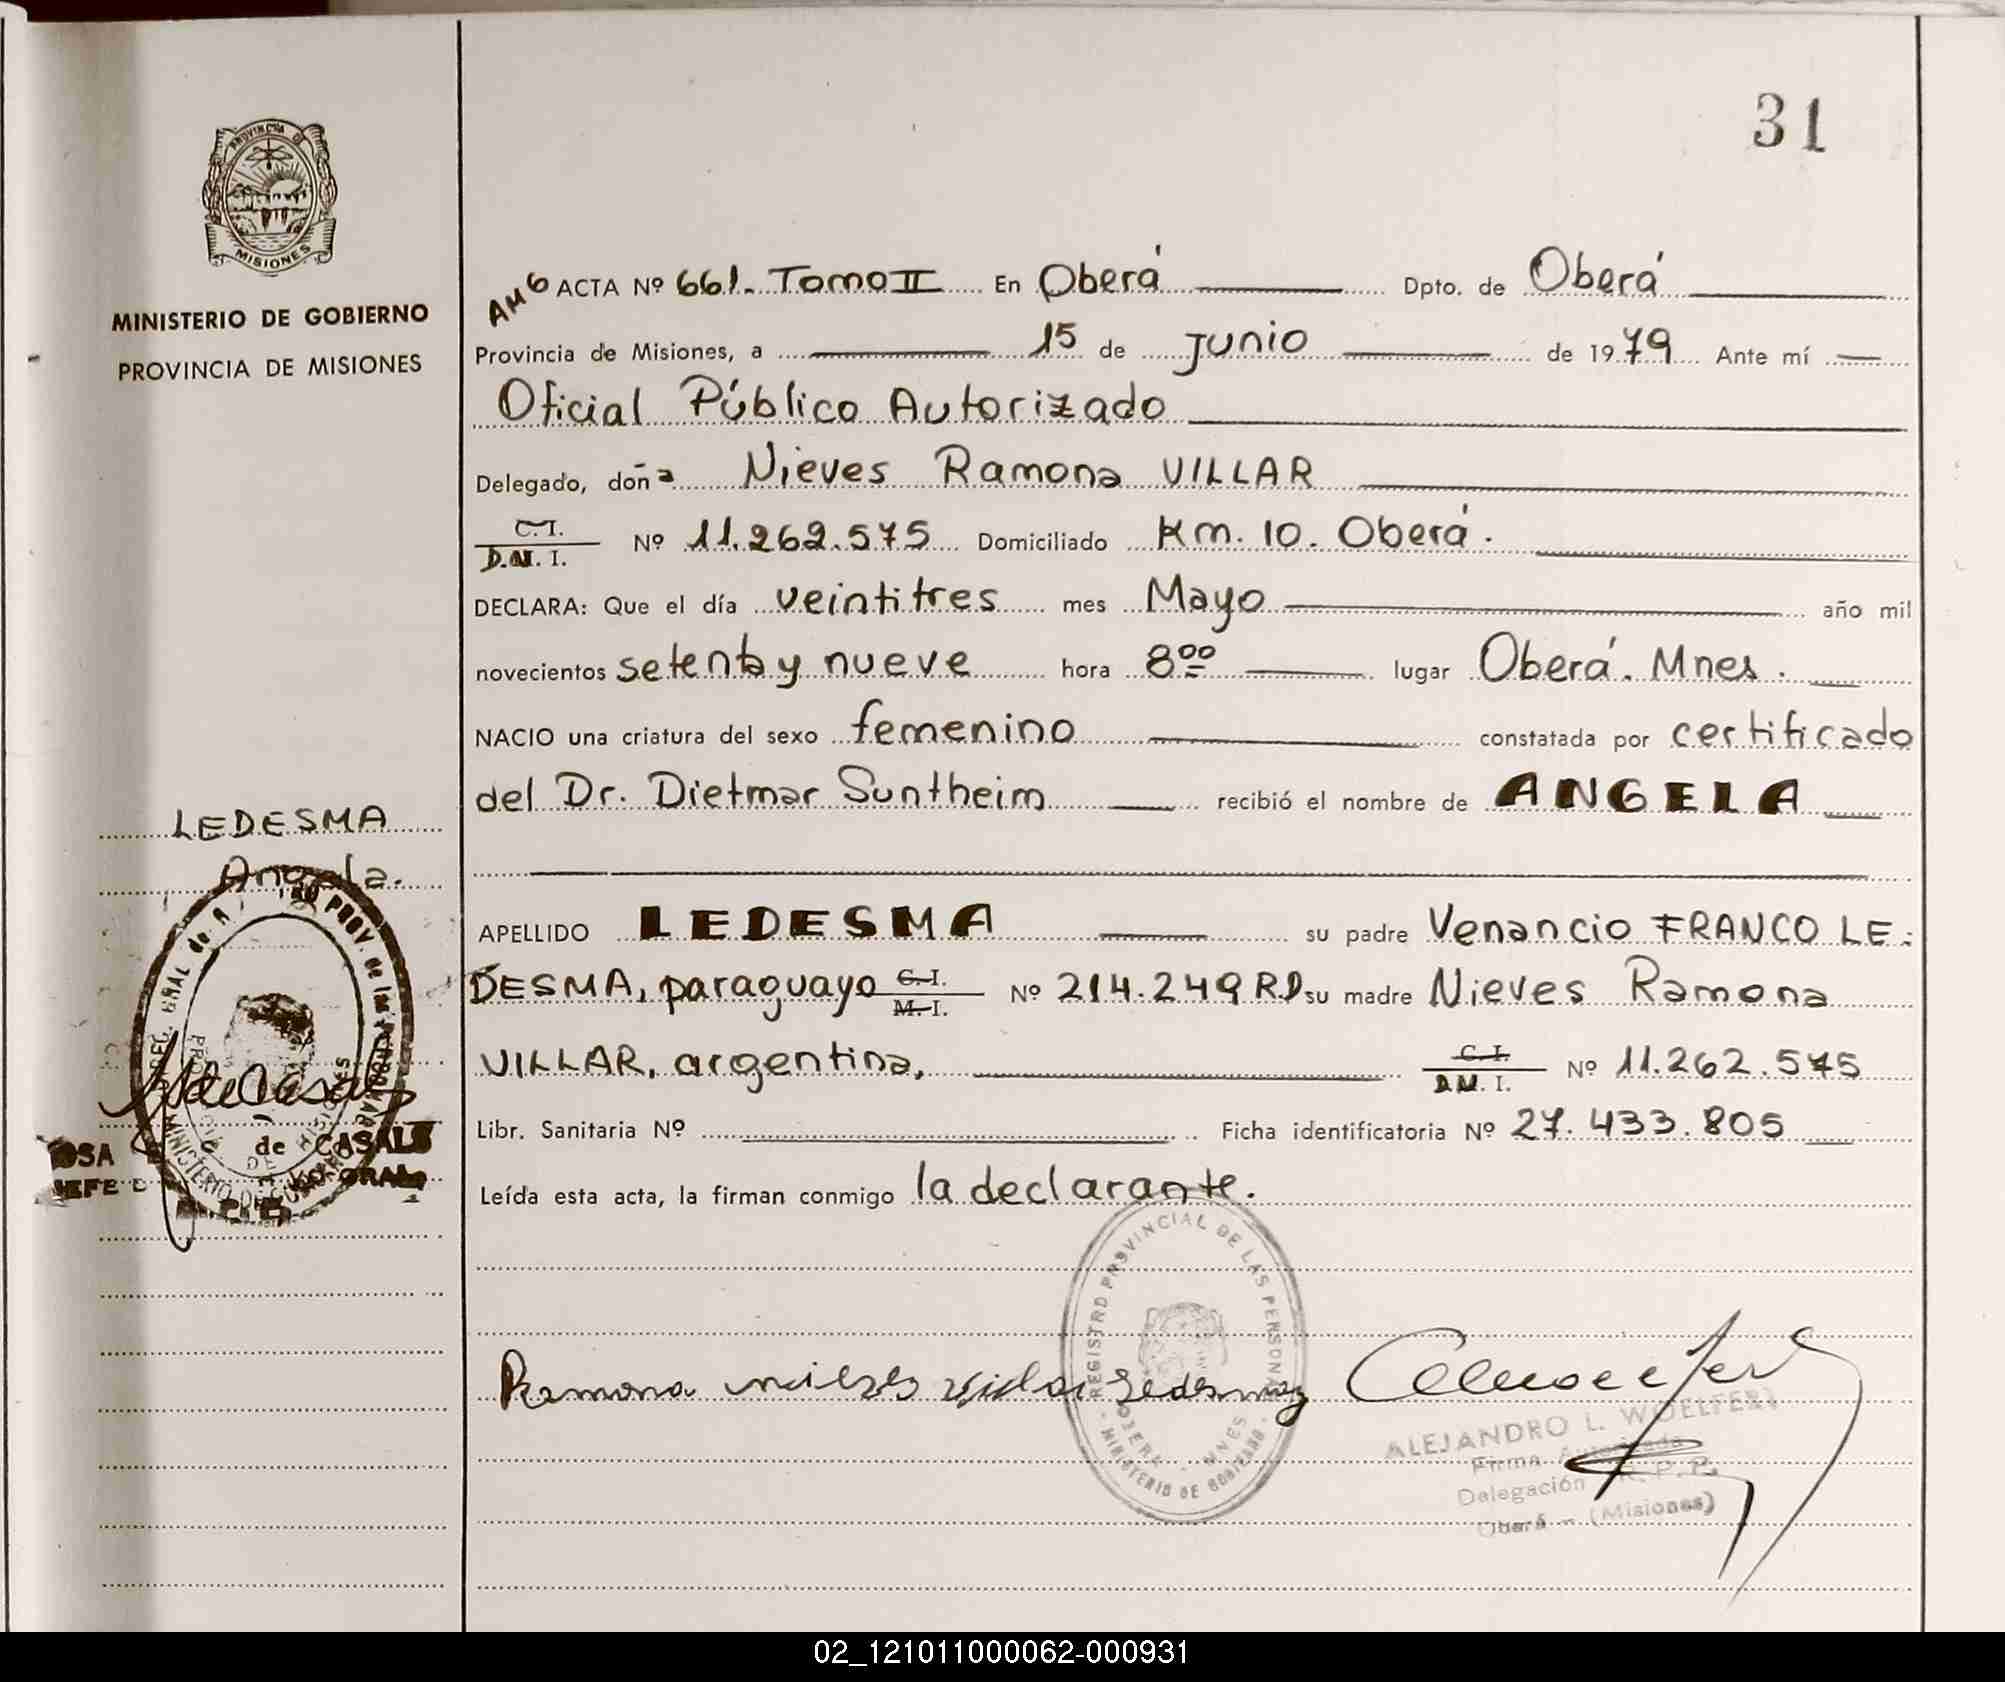 31
PROVINCIA DE
MISIONES
MINISTERIO DE GOBIERNO
PROVINCIA DE MISIONES
AMG ACTA Nº 661. Tomo II En Oberá Dpto. de Oberá
Provincia de Misiones, a 15 de Junio de 1979 Ante mí
Oficial Público Autorizado
Delegado, doña Nieves Ramona VILLAR
C.I.
D.N.I. Nº 11.262.575 Domiciliado Km. 10. Oberá.
DECLARA: Que el día veintitres mes Mayo año mil
novecientos setenta y nueve hora 8⁰⁰ lugar Oberá. Mnes.
NACIO una criatura del sexo femenino constatada por certificado
del Dr. Dietmar Suntheim recibió el nombre de ANGELA
APELLIDO LEDESMA su padre Venancio FRANCO LE-
DESMA, paraguayo C.I. M.I. Nº 214.249 R.P su madre Nieves Ramona
VILLAR, argentina, C.I. D.N.I. Nº 11.262.575
Libr. Sanitaria Nº Ficha identificatoria Nº 27.433.805
Leída esta acta, la firman conmigo la declarante.
LEDESMA
Angela.
de CASALS
REGISTRO PROVINCIAL DE LAS PERSONAS
OBERA - MNES
MINISTERIO DE GOBIERNO
Ramona nieves villar Ledesma
ALEJANDRO L. WOELFERT
Firma Autorizada
Delegación R. P. P.
Oberá - (Misiones)
02_121011000062-000931